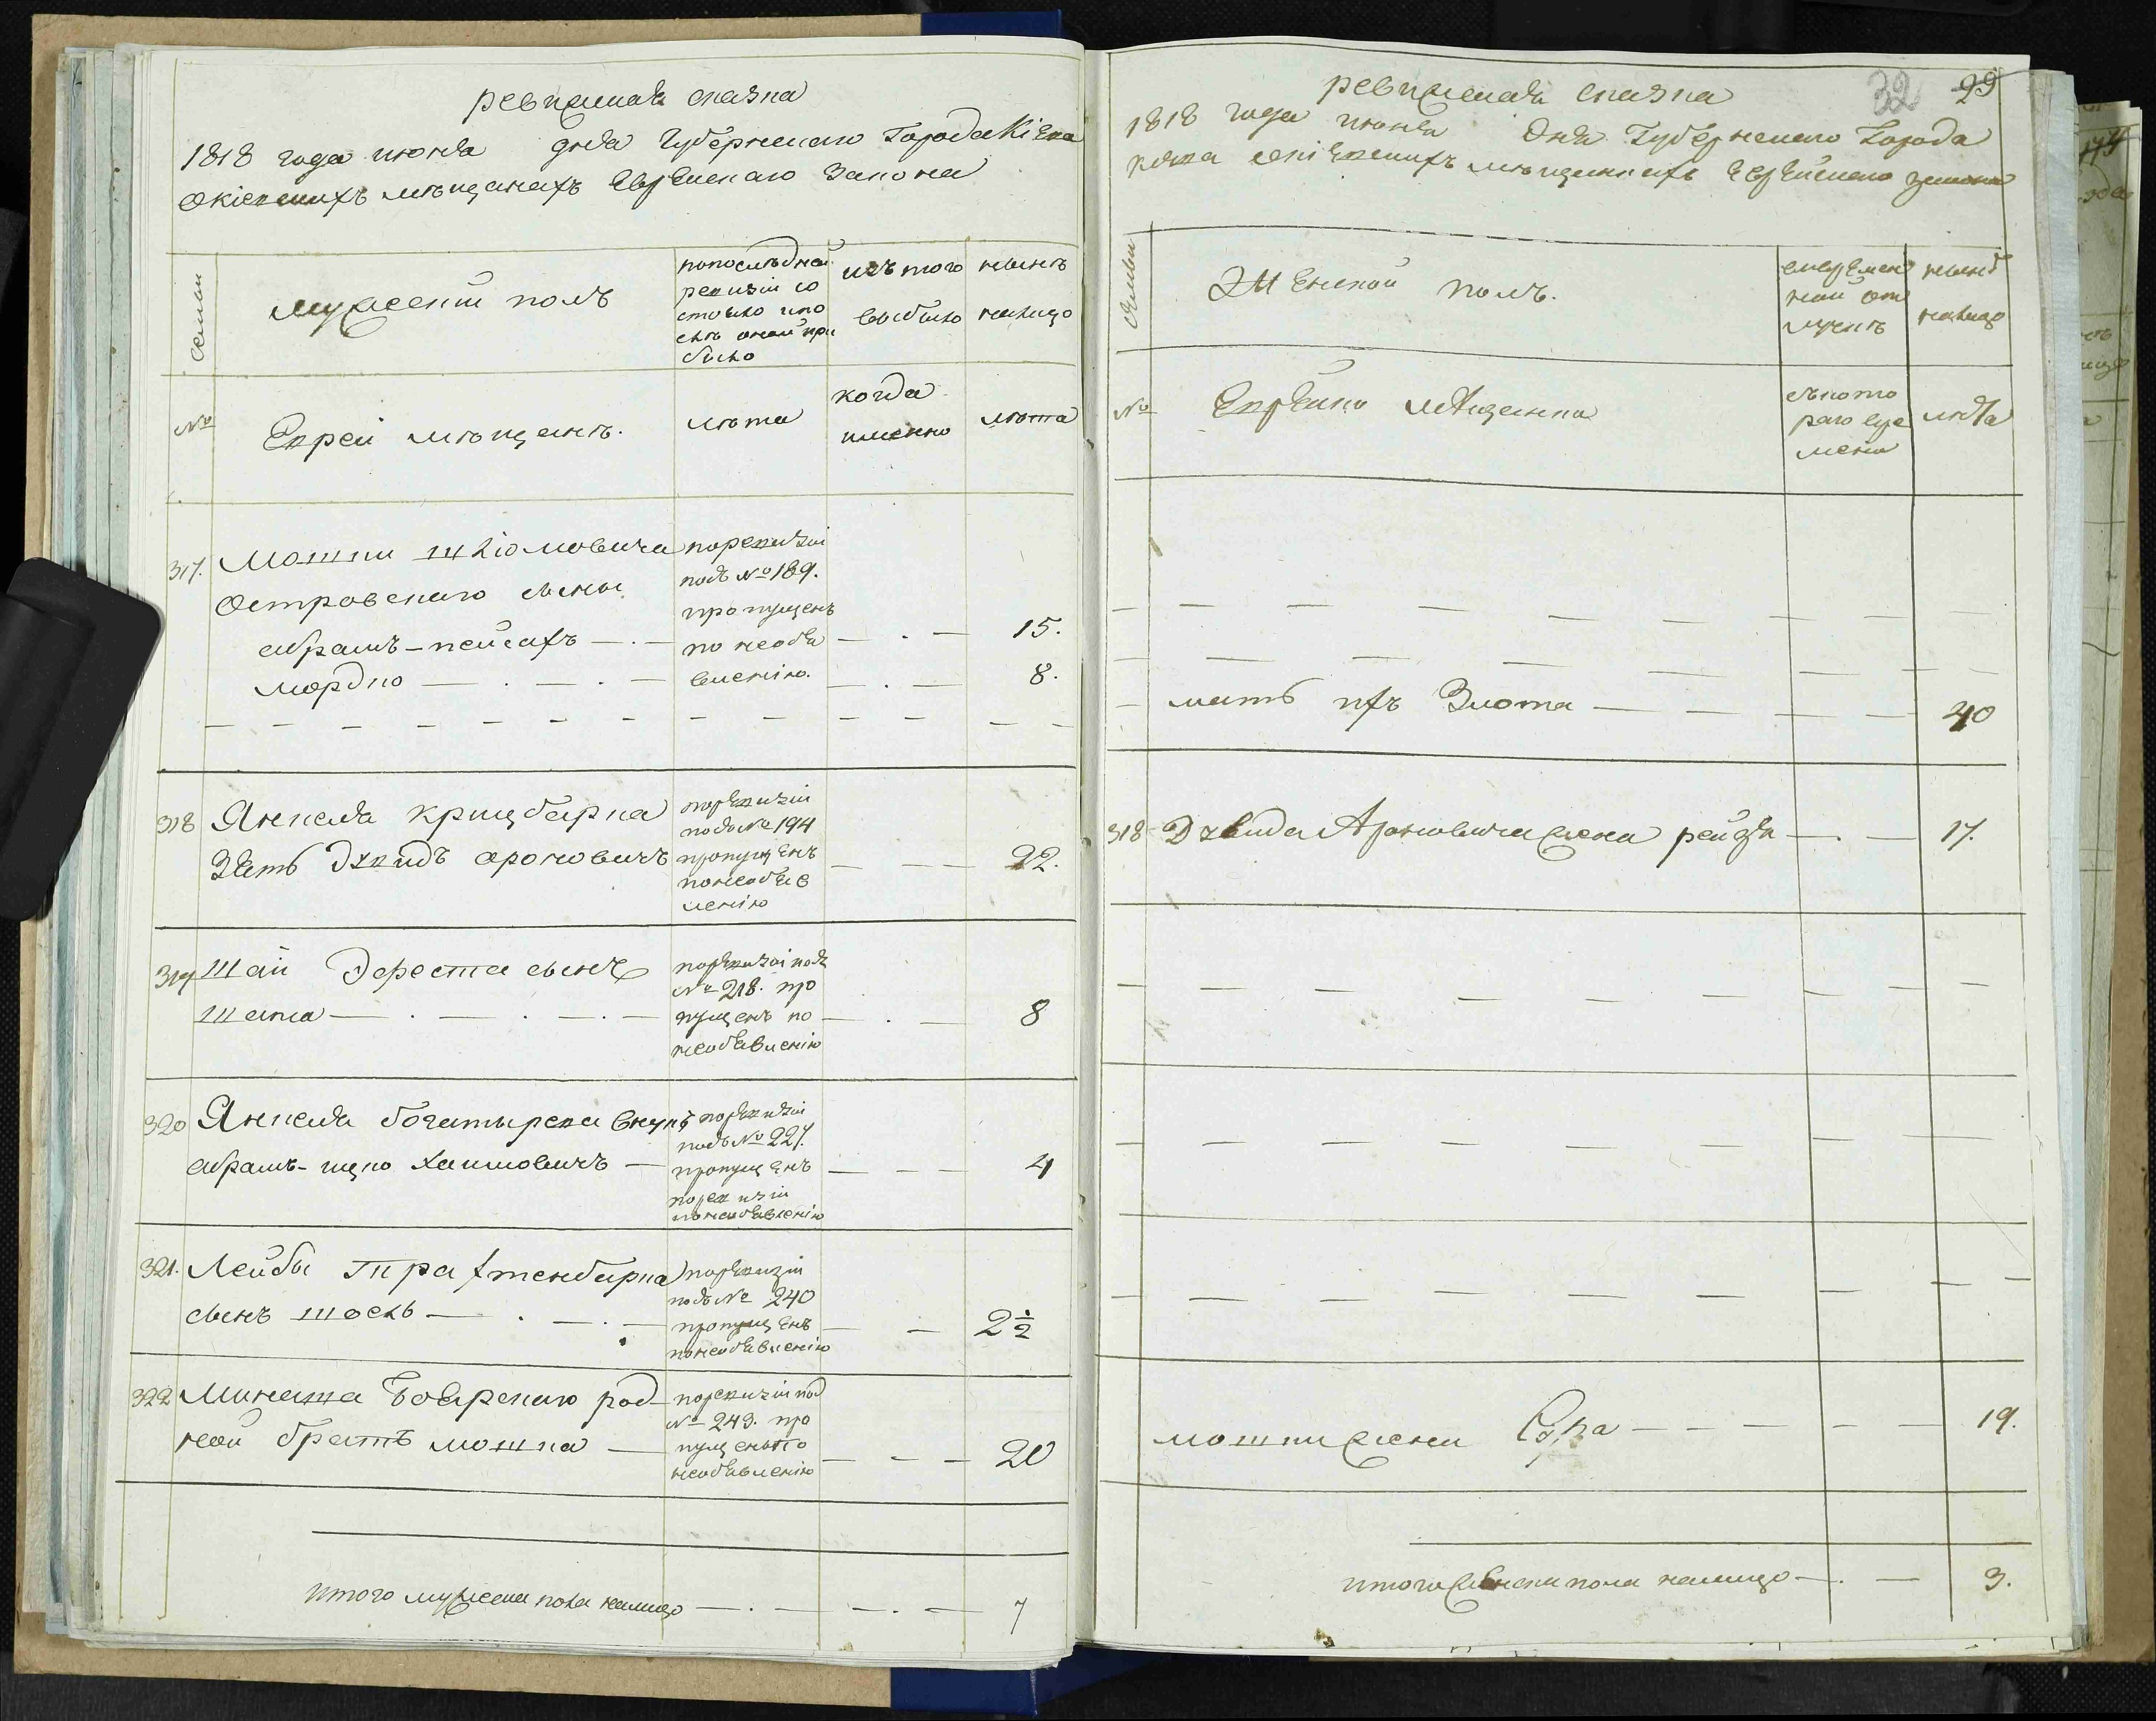 ревижская сказка
1818 года июня дня Губернскаго Города Кіева
о кіевскихъ мѣщанахъ Еврейскаго Закона
семьи
мужескій полъ
по последней
ревизіи со
стояло и по
слѣ оной при
было
изъ того
выбыло
нынѣ
налицо
№
Евреи мѣщанѣ.
лѣта
когда
именно
лѣта
317. Мошки Шліомовича
Островскаго сыны
абрамъ-пейсахъ
мордко
по ревизіи
подъ № 189.
пропущенъ
по необя
вленію.
15.
8.
318 Янкеля Крицберка
Зять Давидъ ароновичъ
по ревизіи
подъ № 194
пропущенъ
по необяв
ленію
22.
319 Шаи Эфеста сынъ
шама
по ревизіи подъ
№ 218. про
пущенъ по
необявленію
8
320 Янкеля богатырева внукъ
абрамъ-ицко хаимовичъ
по ревизіи
подъ № 227.
пропущенъ
по ревизіи
по необявленію
4
321. Лейбы Трахтенберка
сынъ іось
по ревизіи
подъ № 240
пропущенъ
по необявленію
2½
322 Боярскаго род
ной братъ мошка
по ревизіи под
№ 249. про
пущенъ по
необявленію
20
итого мужеска пола налицо
7
32 29
ревижская сказка
1818 года июня дня Губернскаго Города
кіева о кіевскихъ мѣщанкахъ Еврейскаго закона
семьи
Женской полъ.
въ времен
ной от
лучкѣ
нынѣ
налицо
№
Еврейки мѣщанки
съ кото
раго вре
мени
лѣта
мать ихъ Злота
40
318 Давида Ароновича жена рейзя
17.
мошки жена Сура
19.
итого женска пола налицо
3.